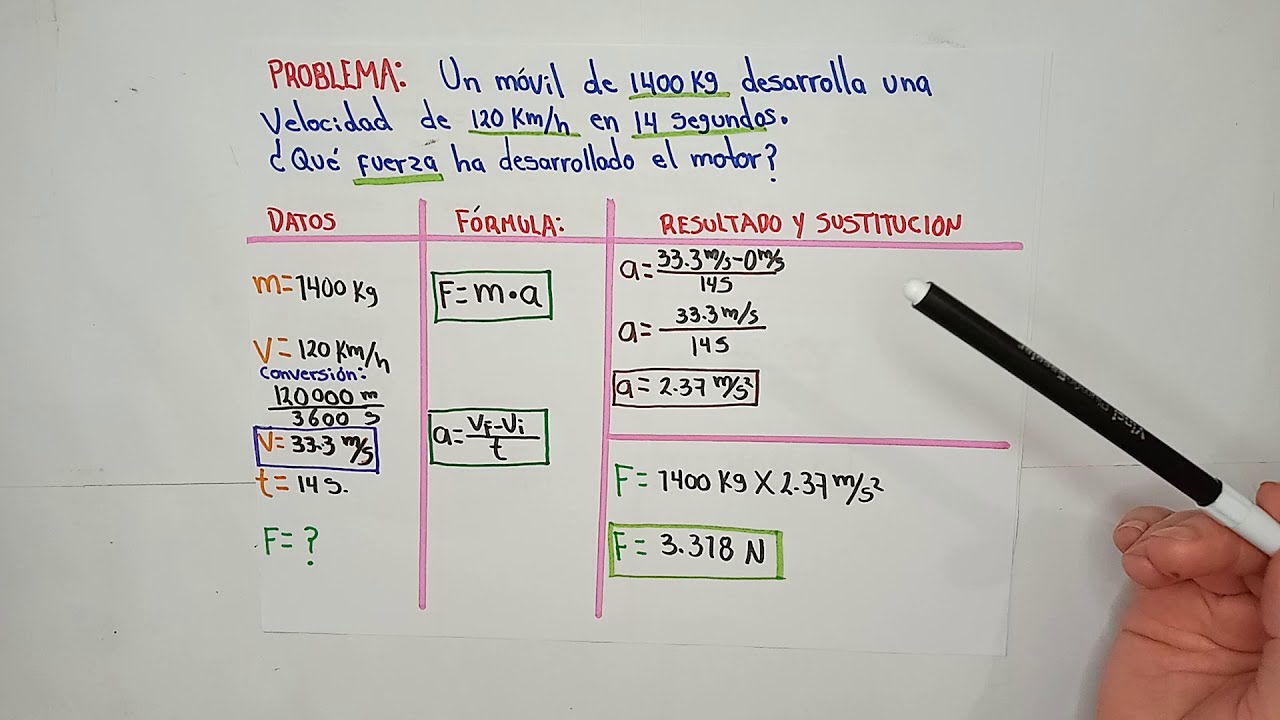 PROBLEMA: Un móvil de 1400 Kg desarrolla una
Velocidad de 120 Km/h en 14 segundos.
¿Qué fuerza ha desarrollado el motor?
DATOS
m=1400 Kg
V=120 Km/h
Conversión:
120000 m
3600 s
V=33.3 m/s
t=14 s.
F=?
FÓRMULA:
F=m·a
a=VF-Vi/t
RESULTADO Y SUSTITUCION
a=33.3 m/s-0 m/s
14 s
a=33.3 m/s
14 s
a=2.37 m/s²
F=1400 Kg X 2.37 m/s²
F=3.318 N